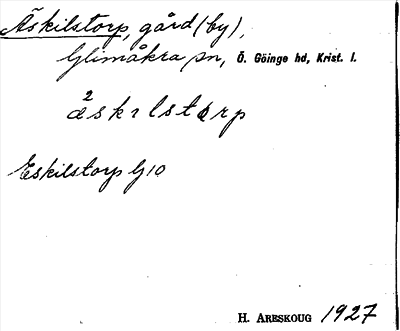 Äskilstorp, gård (by),
Glimåkra sn, Ö. Göinge hd, Krist. l.
Eskilstorp G 10
H. ARESKOUG 1927